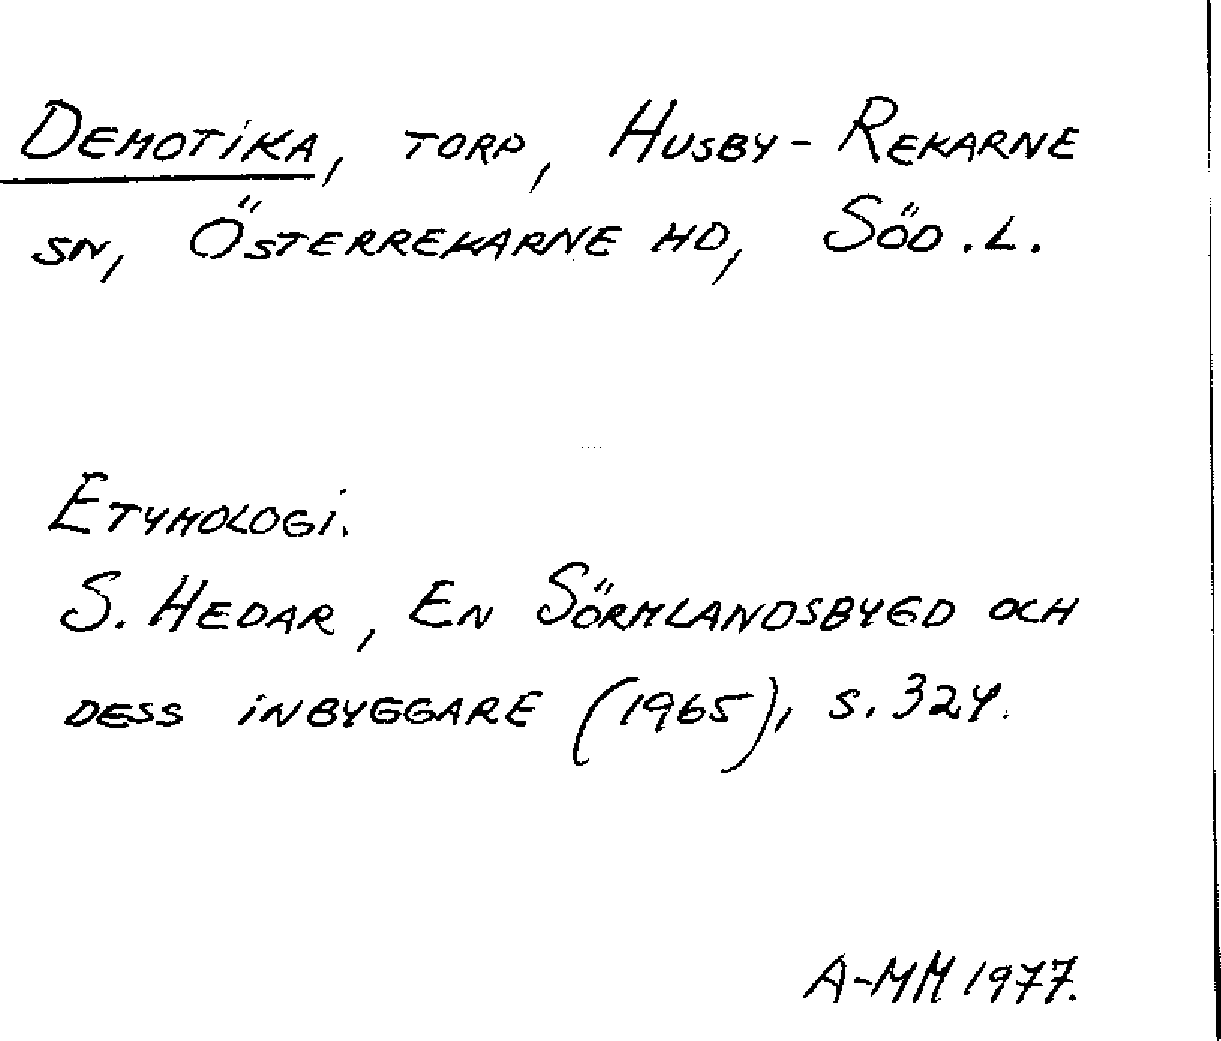 DEMOTIKA, TORP, HUSBY-REKARNE
SN, ÖSTERREKARNE HD, SÖD.L.
ETYMOLOGI.
S. HEDAR, EN SÖRMLANDSBYGD OCH
DESS INBYGGARE (1965), S. 324.
A-MM 1977.